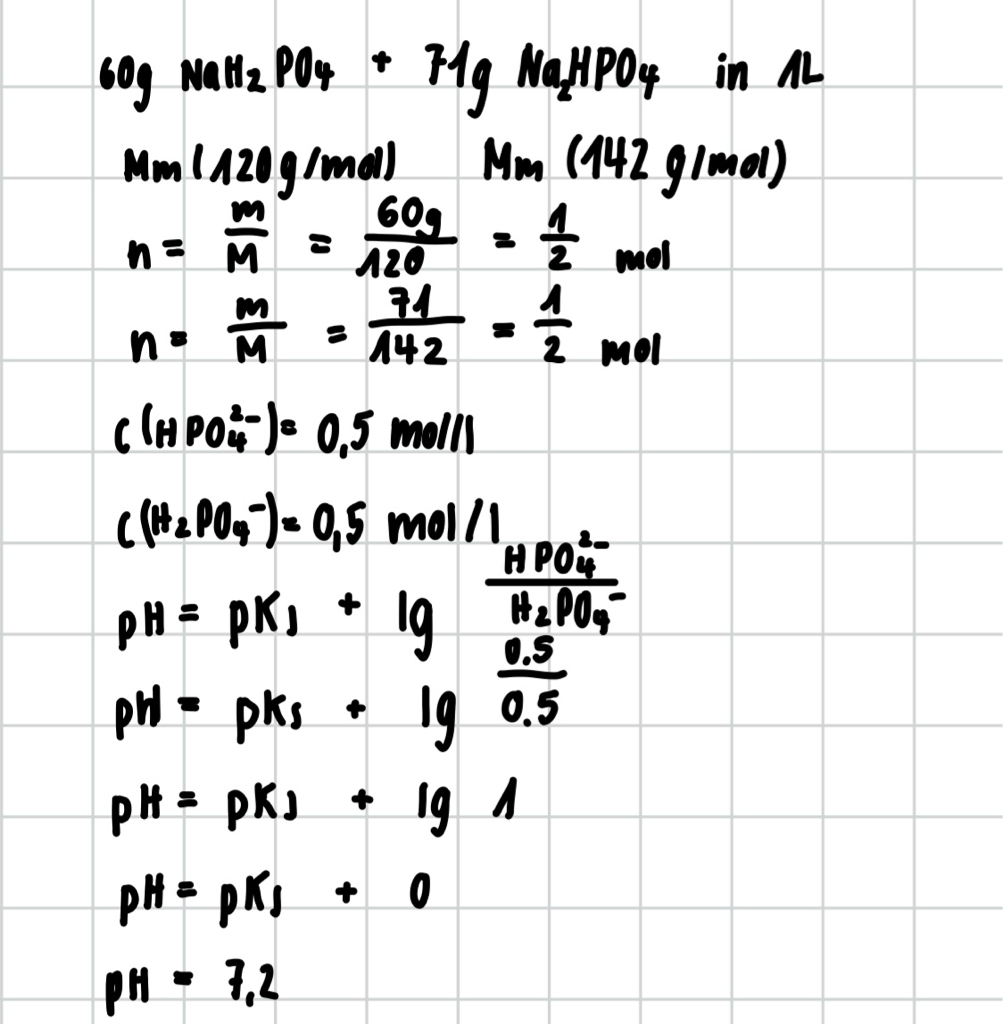 60g NaH₂PO₄ + 71g Na₂HPO₄ in 1L
Mm (120 g/mol) Mm (142 g/mol)
n = m/M = 60g/120 = 1/2 mol
n = m/M = 71/142 = 1/2 mol
c(HPO₄²⁻) = 0,5 mol/l
c(H₂PO₄⁻) = 0,5 mol/l
pH = pKs + lg HPO₄²⁻/H₂PO₄⁻
pH = pKs + lg 0.5/0.5
pH = pKs + lg 1
pH = pKs + 0
pH = 7,2